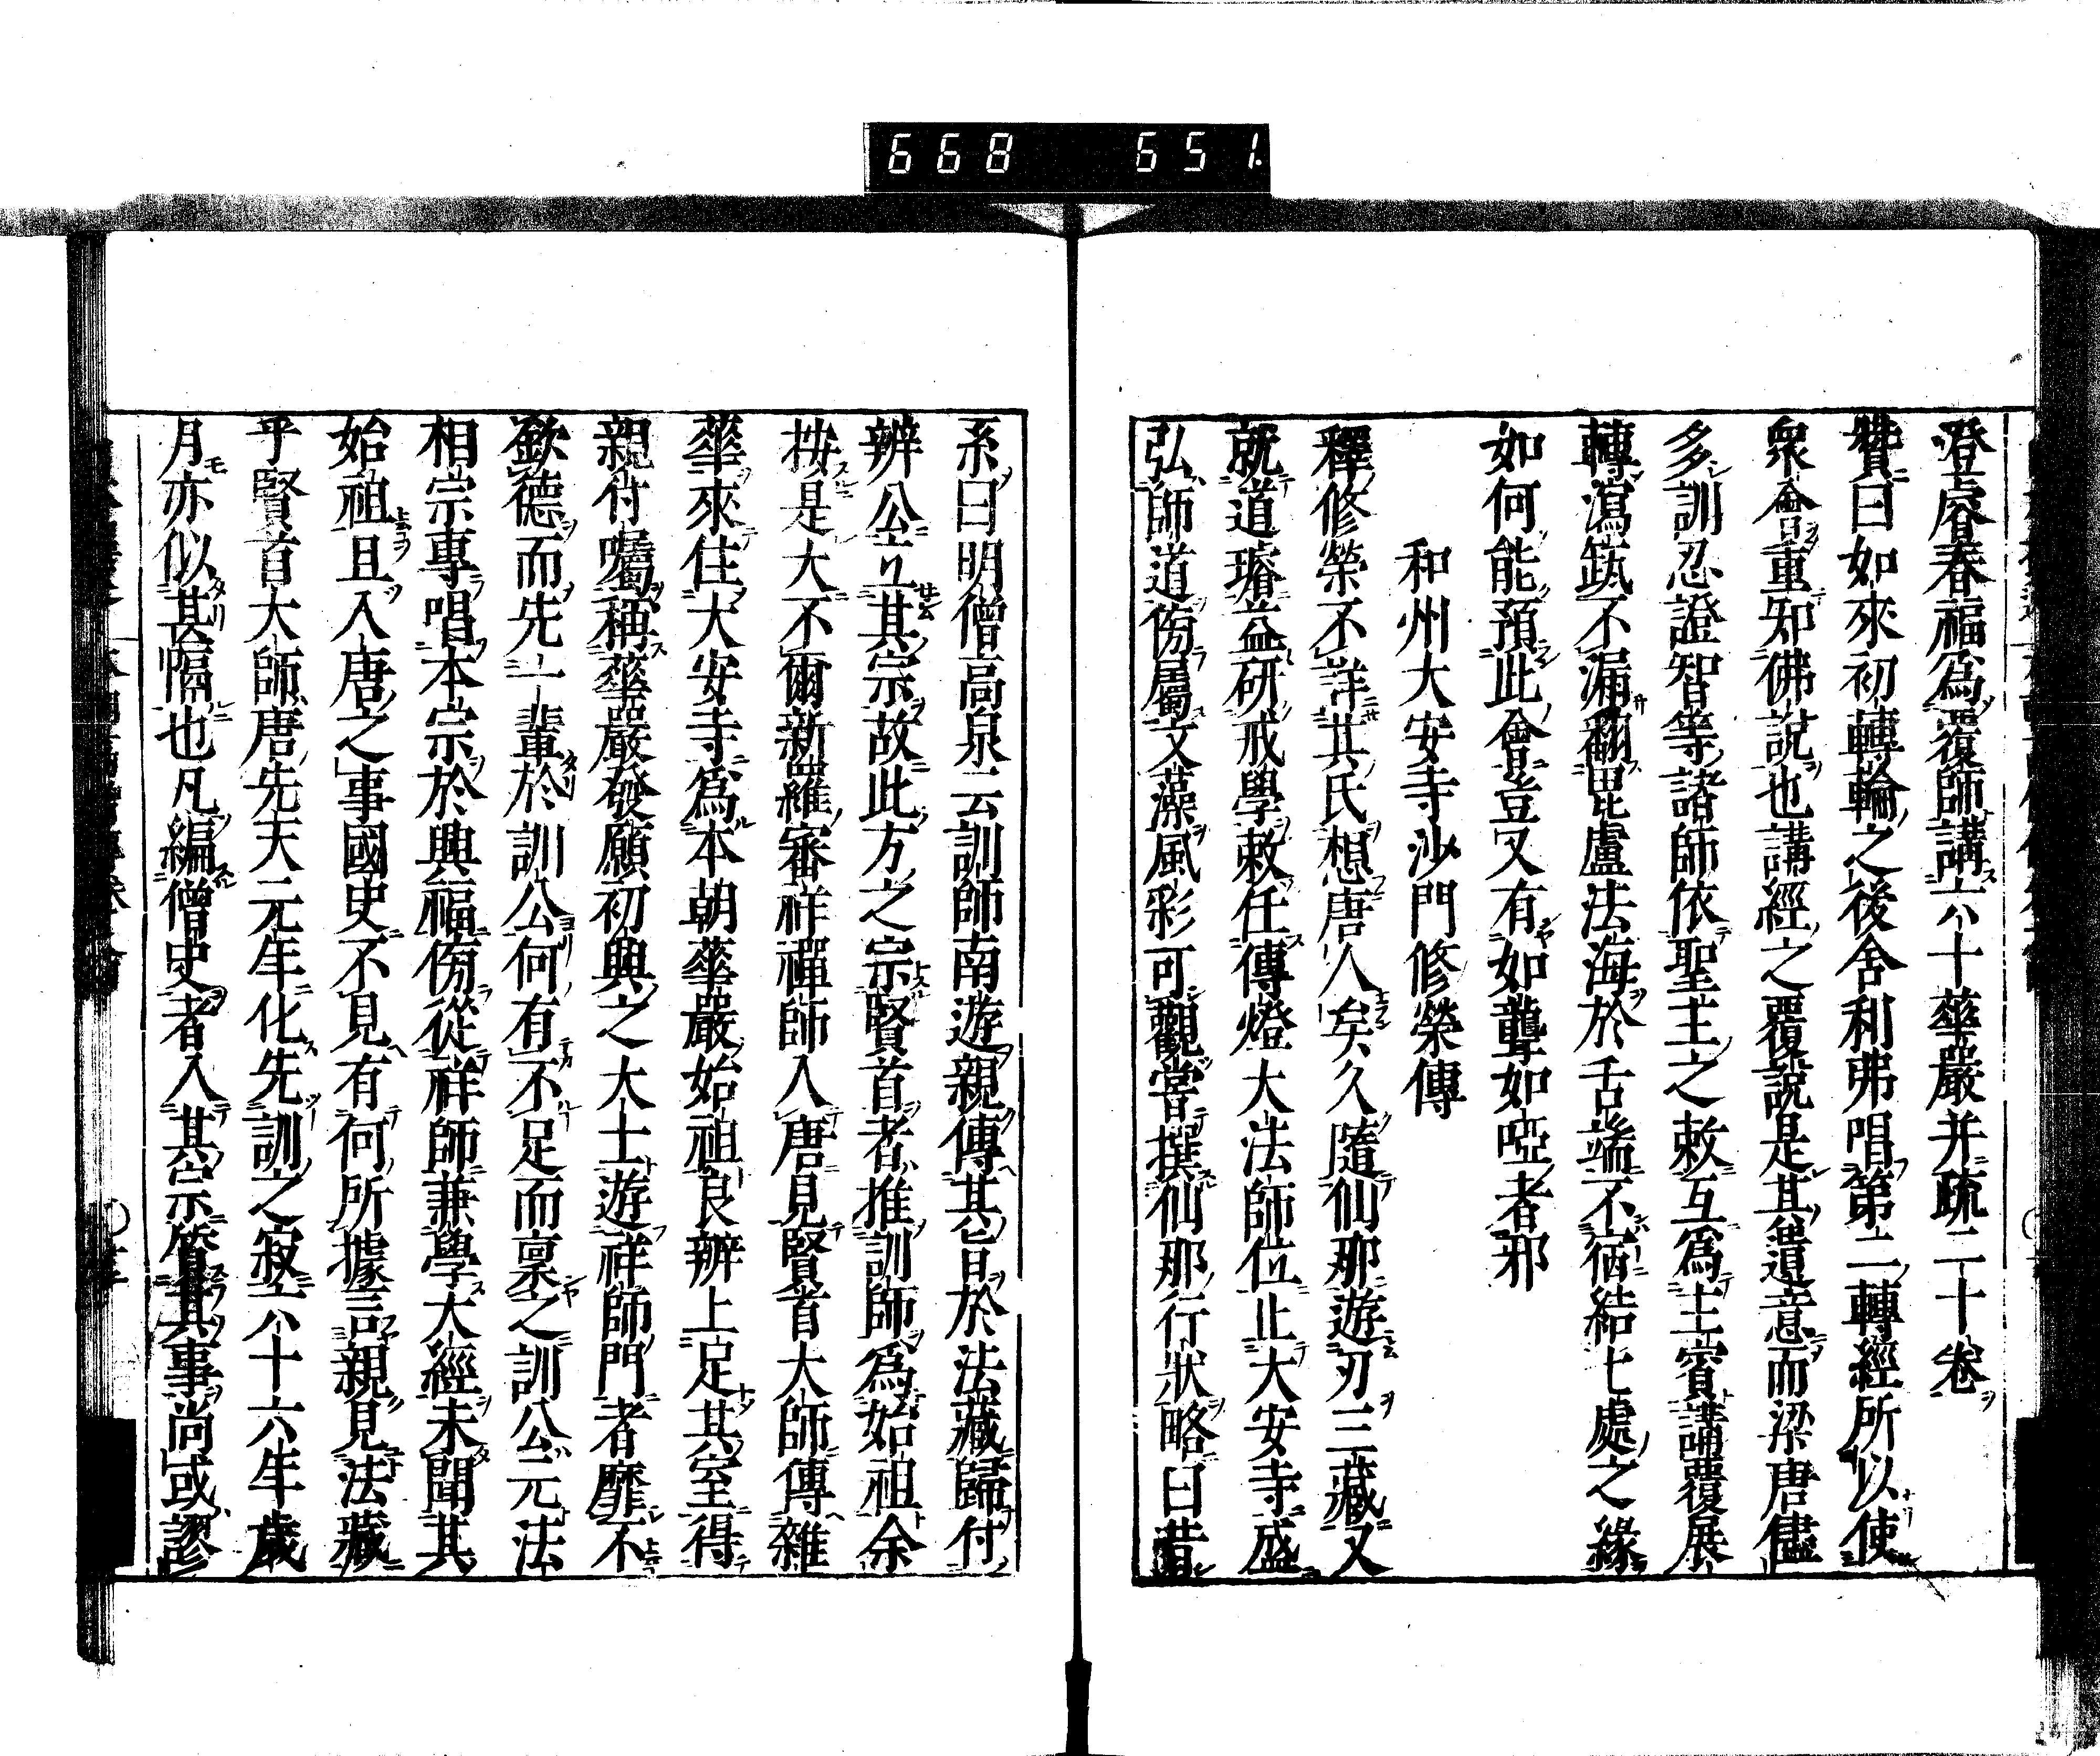 668 651.
澄睿春福爲覆師講六十華嚴并疏二十卷
贊曰如來初轉輪之後舍利弗唱第二轉經所以使
衆會重知佛說也講經之覆說是其遺意而梁唐儘
多訓忍證智等諸師依聖主之敕互爲主賓講覆展
轉瀉瓴不漏翻毘盧法海於舌端不病結七處之緣
如何能預此會豈又有如聾如啞者邪
和州大安寺沙門修榮傳
釋修榮不詳其氏想唐人矣久隨仙那遊刃三藏又
就道璿益研戒學敕任傳燈大法師位止大安寺盛
弘師道傍屬文藻風彩可觀嘗撰仙那行狀略曰昔
系曰明僧高泉云訓師南遊親傳其旨於法藏歸付
辨公立其宗故此方之宗賢首者推訓師爲始祖余
按是大不爾新羅審祥禪師入唐見賢首大師傳雜
華來住大安寺爲本朝華嚴始祖良辨上足其室得
親付囑稱華嚴發願初興之大士遊祥師門者靡不
歙德而先一輩於訓公何有不足而稟之訓公元法
相宗專唱本宗於興福傍從祥師兼學大經未聞其
始祖且入唐之事國史不見有何所據言親見法藏
乎賢首大師唐先天元年化先訓之寂六十六年歲
月亦似其隔也凡編僧史者入其宗管其事尚或謬